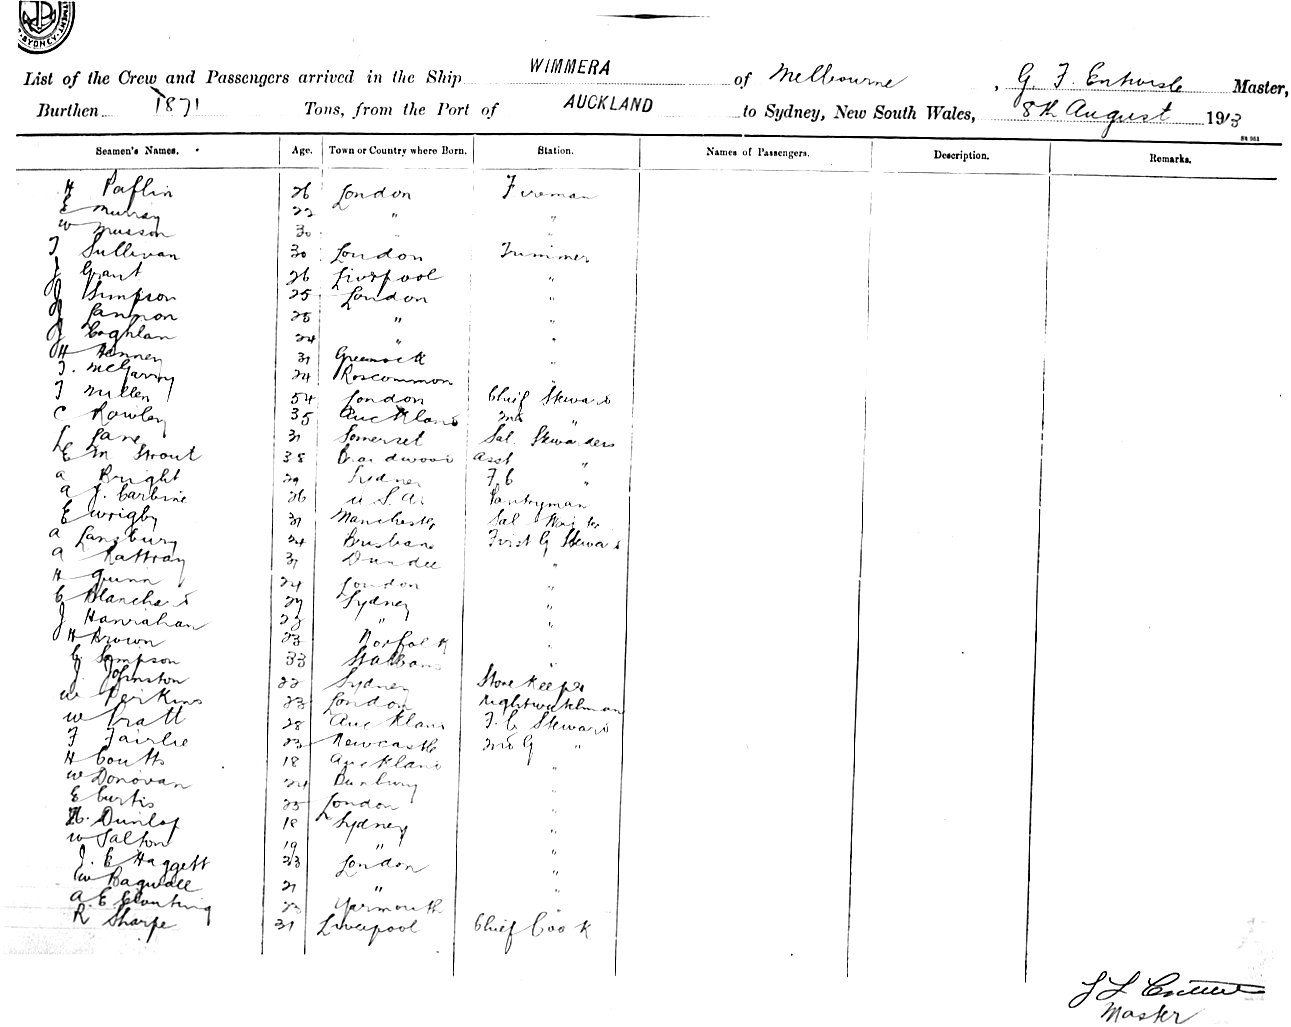 SYDNEY
List of the Crew and Passengers arrived in the Ship WIMMERA of Melbourne, G F Entwisle Master,
Burthen 1871 Tons, from the Port of AUCKLAND to Sydney, New South Wales, 8th August 1913
Seamen's Names. Age. Town or Country where Born. Station. Names of Passengers. Description. Remarks.
H Paflin 26 London Fireman
E Murray 22 " "
W Musson 30 " "
T Sullivan 30 London Trimmer
J Grant 26 Liverpool "
J Simpson 25 London "
J Lannon 25 " "
J Coghlan 24 " "
H Kenney 31 Greenock "
T. McGarry 24 Roscommon "
T Millen 54 London Chief Steward
C Rowley 35 Auckland 2nd "
L Lane 31 Somerset Sal. Stewardess
E M Strout 38 Braidwood Asst "
A Bright 29 Sydney F.C "
A J. Carbine 26 U.S.A. Pantryman
E Wrigby 31 Manchester Sal Waiter
A Lansbury 24 Brisbane First G Steward
A Rattray 31 Dundee "
H Gunn 24 London "
C Blanchard 29 Sydney "
J Hanrahan 22 " "
H Brown 23 Norfolk "
G Simpson 33 St Albans "
J. Johnston 22 Sydney Storekeeper
W Perkins 23 London Nightwatchman
W Pratt 28 Auckland F.C Steward
F Fairlie 23 Newcastle 2nd G "
H Coutts 18 Auckland "
W Donovan 24 Bunbury "
E Curtis 25 London "
H. Dunlop 18 Sydney "
W Salton 19 " "
J. E Haggett 23 London "
W Bagwell 21 " "
A. E Counting 23 Yarmouth "
R Sharpe 31 Liverpool Chief Cook
Master